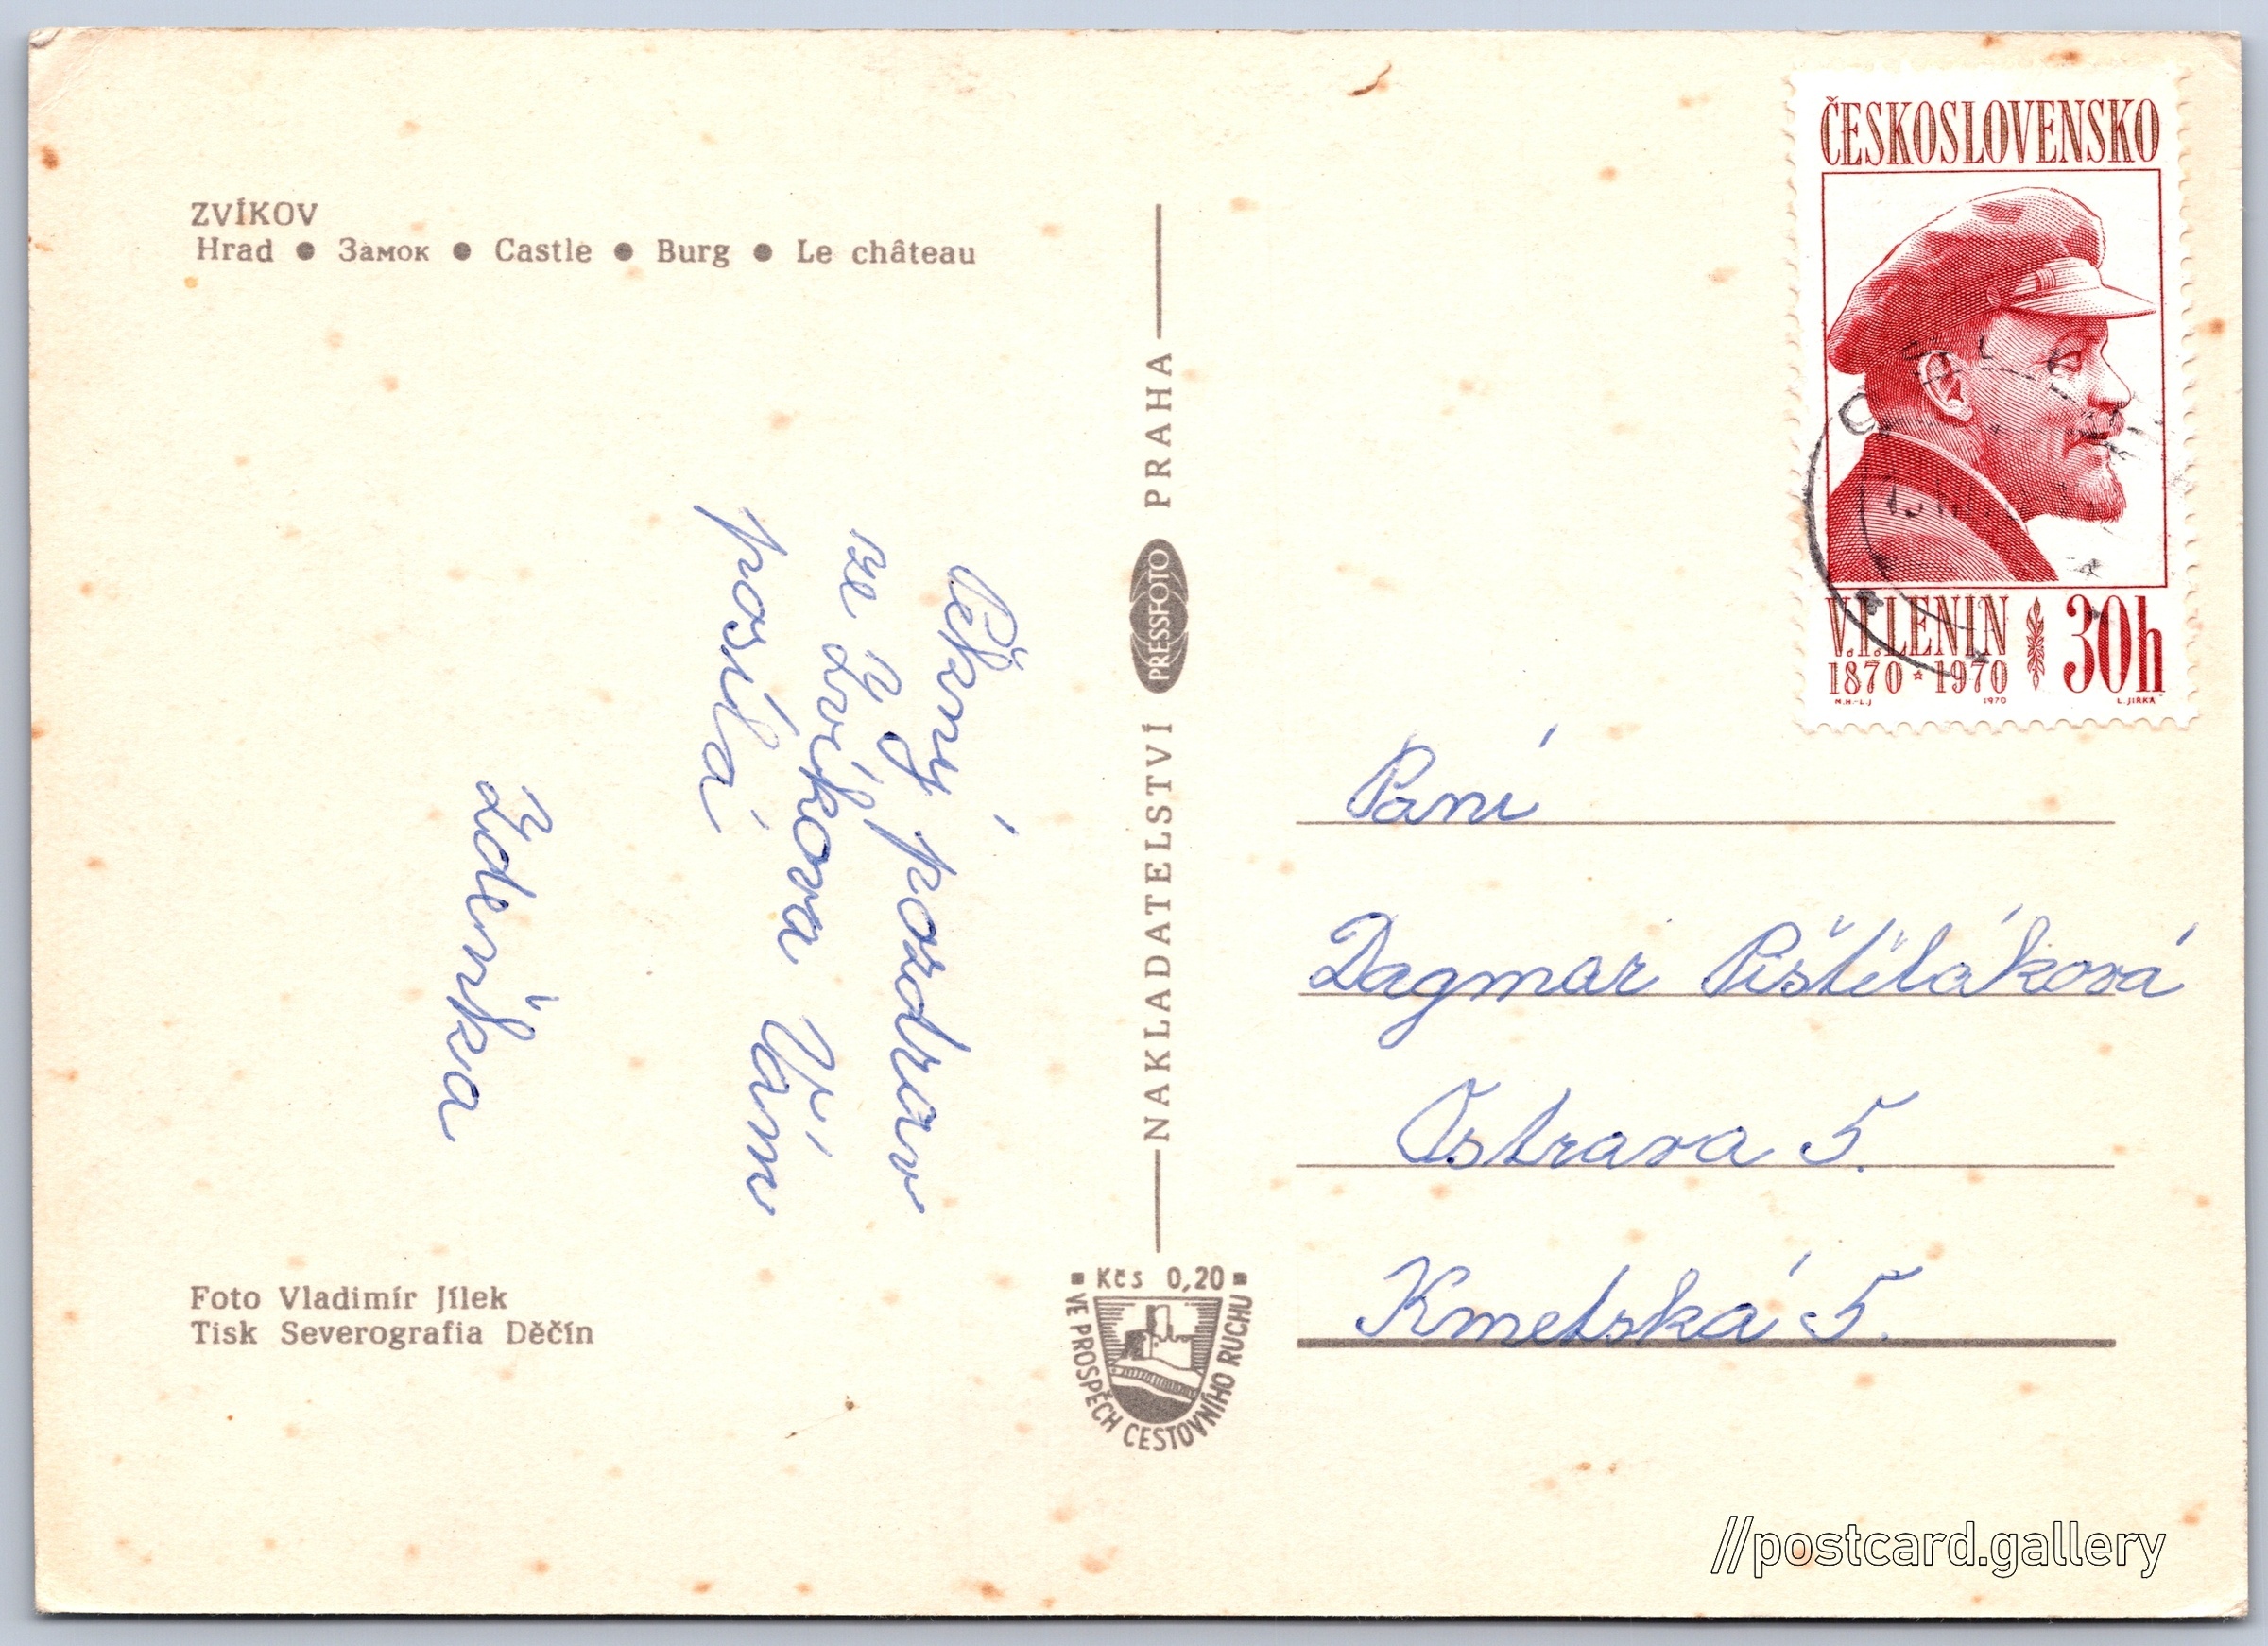 ZVÍKOV
Hrad ● Замок ● Castle ● Burg ● Le château
Pěkný pozdrav
ze Zvíkova Vám
posílá
Zdenka
Foto Vladimír Jílek
Tisk Severografia Děčín
NAKLADATELSTVÍ PRESSFOTO PRAHA
Kčs 0,20
VE PROSPĚCH CESTOVNÍHO RUCHU
ČESKOSLOVENSKO
V.I.LENIN 30h
1870 * 1970
M.H.-L.J 1970 L.JIRKA
Paní
Dagmar Pištěláková
Ostrava 5.
Kmetská 5.
//postcard.gallery